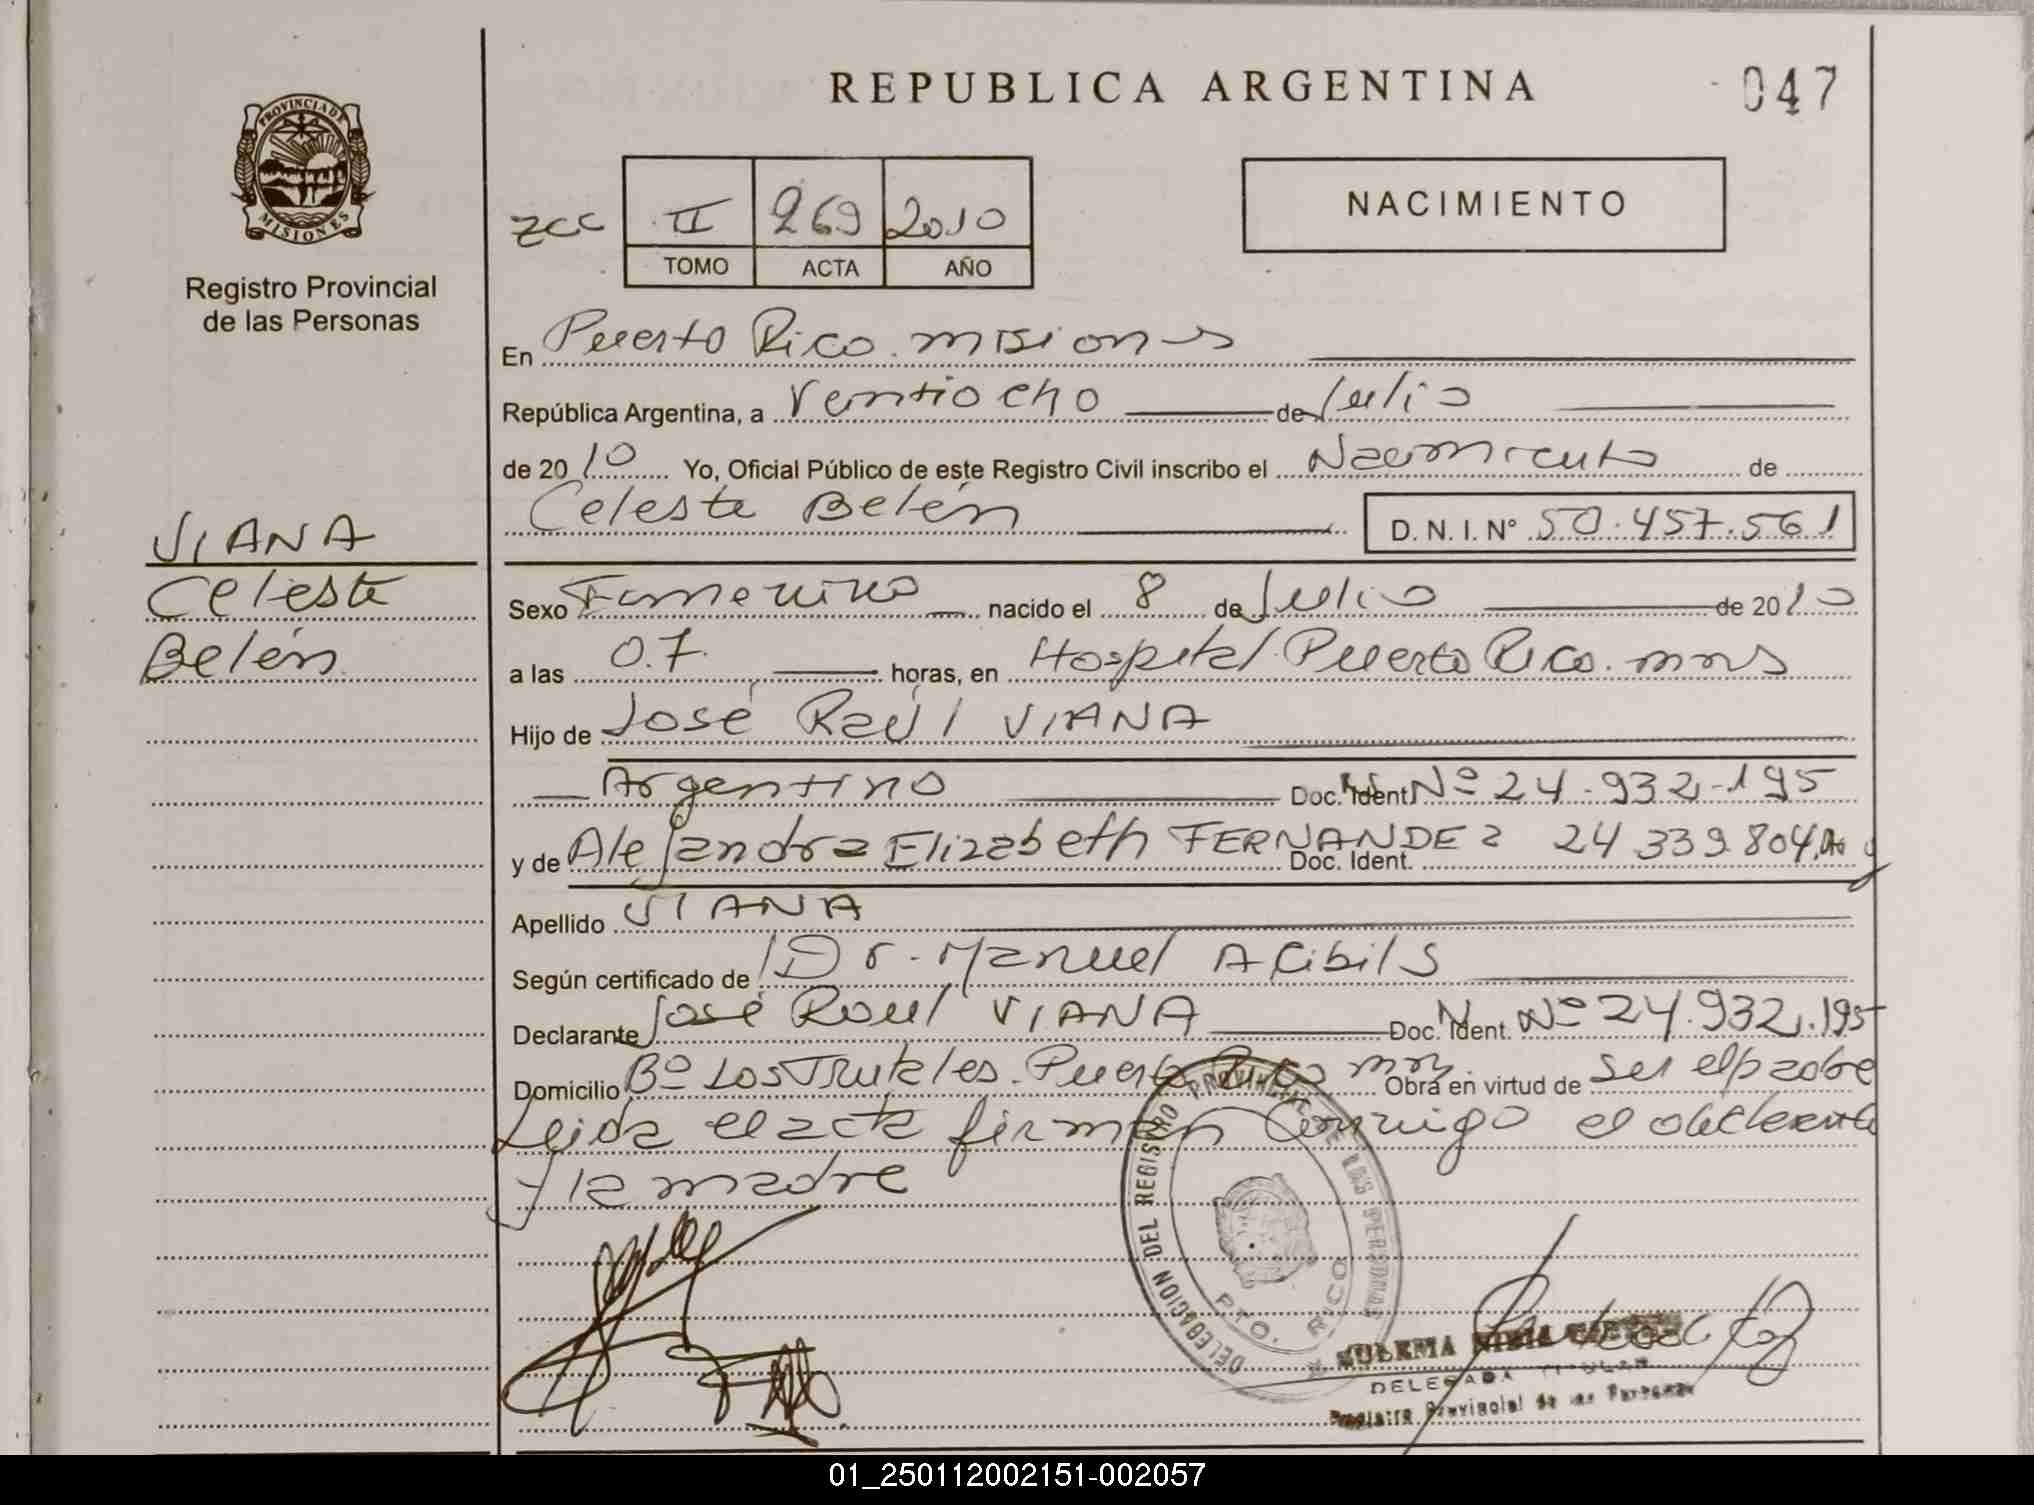 REPUBLICA ARGENTINA
047
PROVINCIA DE
MISIONES
Registro Provincial
de las Personas
zcc II 269 2010
TOMO ACTA AÑO
NACIMIENTO
En Puerto Rico. misiones
República Argentina, a Ventiocho de Julio
de 2010 Yo, Oficial Público de este Registro Civil inscribo el Nacimiento de
Celeste Belén D. N. I. N° 50.457.561
VIANA
Celeste
Belén
Sexo Femenino nacido el 8 de Julio de 2010
a las 07. horas, en Hospital Puerto Rico. mns
Hijo de José Raúl VIANA
Argentino Doc. Ident. Nº 24.932.195
y de Alejandra Elizabeth FERNANDEZ Doc. Ident. 24 339.804
Apellido VIANA
Según certificado de Dr. Manuel
Declarante José Raul VIANA Doc. Ident. Nº 24.932.195
Domicilio Bº Los Frutales. Puerto Rico mns. Obra en virtud de ser el padre
Leida el acta firman conmigo el declarante
y la madre
DELEGACION DEL REGISTRO PROVINCIAL DE LAS PERSONAS
PTO. RICO
ZULEMA
DELEGADA TITULAR
Registro Provincial de las Personas
01_250112002151-002057